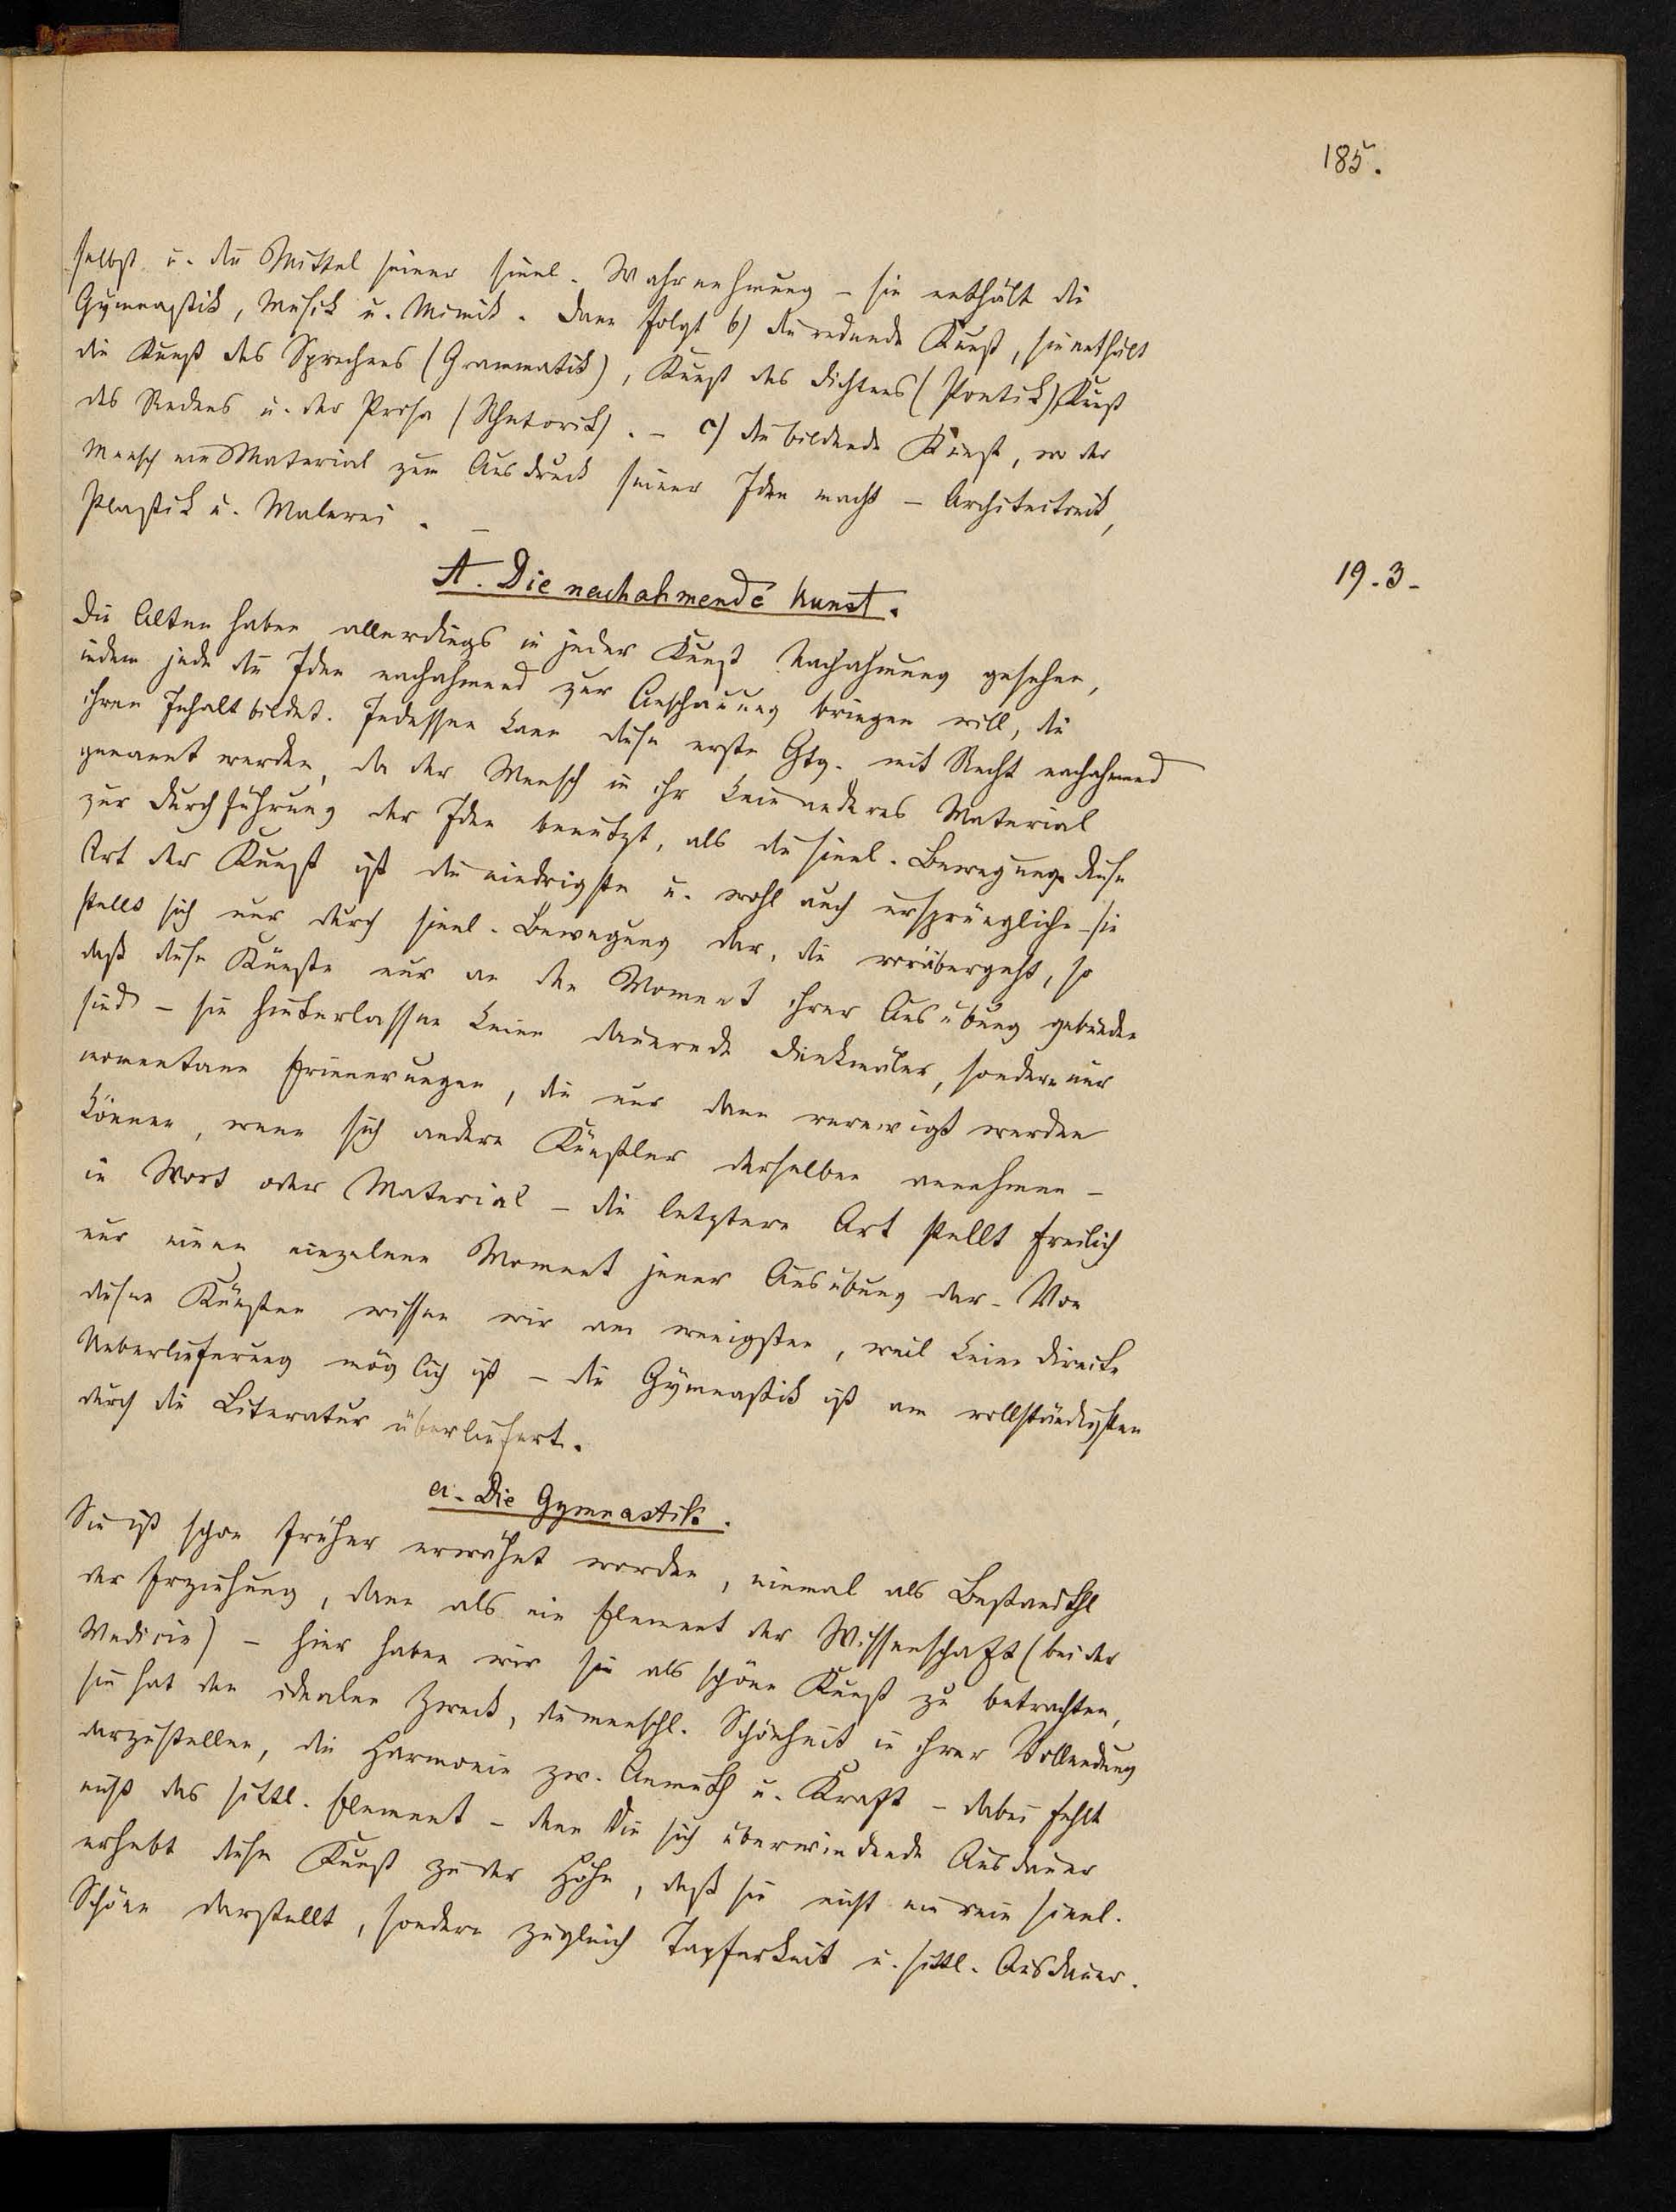 185.
selbst u. die Mittel seiner sinnl. Wahrnehmung – sie enthält die
Gymnastik, Musik u. Mimik. Dann folgt b) die redende Kunst, sie enthält
die Kunst des Sprechens (Grammatik), Kunst des Dichtens (Poetik), Kunst
des Redens u. der Prosa (Rhetorik). – c) die bildende Kunst, wo der
Mensch ein Material zum Ausdruck seiner Idee macht – Architectonik,
Plastik u. Malerei. –
19.3.
A. Die nachahmende Kunst.
Die Alten haben allerdings in jeder Kunst Nachahmung gesehen,
indem jede die Idee nachahmend zur Anschauung bringen will, die
ihren Inhalt bildet. Indessen kann diese erste Gtg. mit Recht nachahmend
genannt werden, da der Mensch in ihr kein anderes Material
zur Durchführung der Idee benutzt, als die sinnl. Bewegung. Diese
Art der Kunst ist die niedrigste u. wohl auch ursprüngliche – sie
stellt sich nur durch sinnl. Bewegung dar, die vorübergeht, so
daß diese Künste nur an den Moment ihrer Ausübung gebunden
sind – sie hinterlassen keine dauernde Denkmäler, sondern nur
momentane Erinnerungen, die nur dann verewigt werden
können, wenn sich andere Künstler derselben annehmen –
in Wort oder Material – die letztere Art stellt freilich
nur einen einzelnen Moment jener Ausübung dar. Von
diesen Künsten wissen wir am wenigsten, weil keine directe
Ueberlieferung möglich ist – die Gymnastik ist am vollständigsten
durch die Literatur überliefert.
a. Die Gymnastik.
Sie ist schon früher erwähnt worden, einmal als Bestandthl
der Erziehung, dann als ein Element der Wissenschaft (bei der
Medicin) – hier haben wir sie als schöne Kunst zu betrachten,
sie hat den idealen Zweck, die menschl. Schönheit in ihrer Vollendung
darzustellen, die Harmonie zw. Anmuth u. Kraft – dabei fehlt
nicht das sittl. Element – denn die sich überwindende Ausdauer
erhebt diese Kunst zu der Höhe, daß sie nicht ein rein sinnl.
Schöne darstellt, sondern zugleich Tapferkeit u. sittl. Ausdauer.